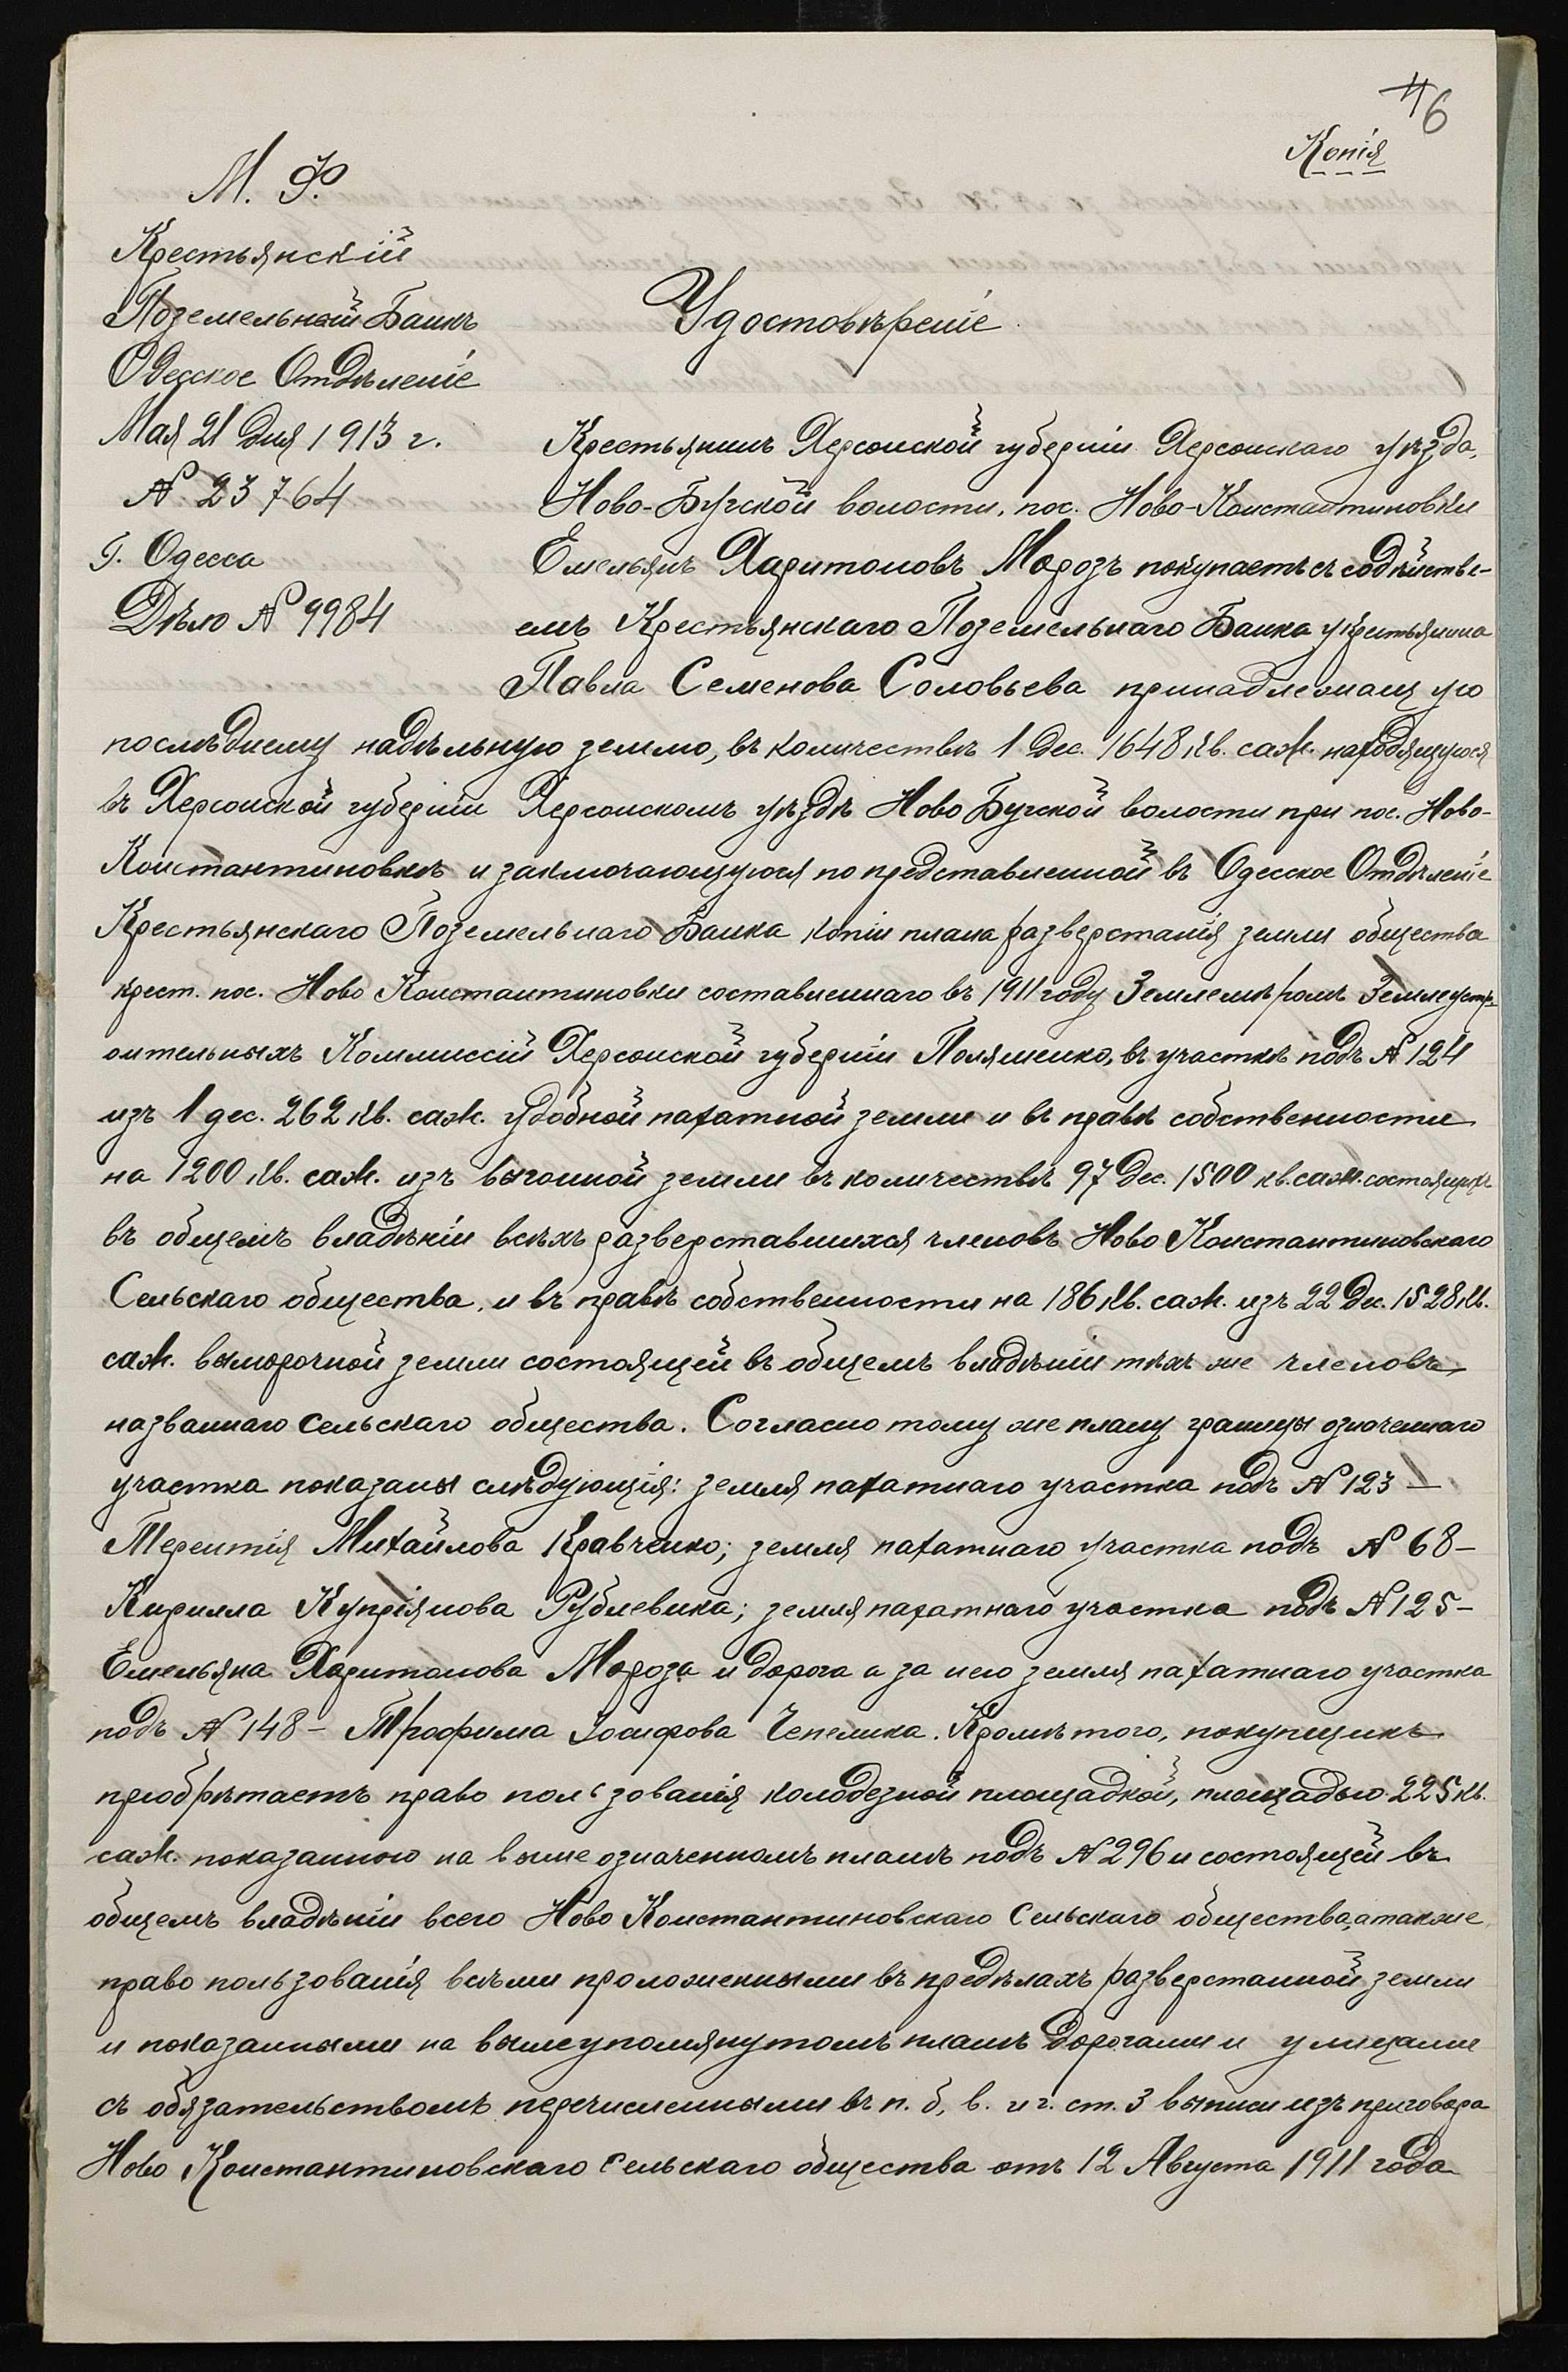 6
Копія
М. Ф.
Крестьянскій
Поземельный Банкъ
Одесское Отдѣленіе
Мая 21 дня 1913 г.
№ 23764
Г. Одесса
Дѣло № 9984
Удостовѣреніе
Крестьянинъ Херсонской губерніи Херсонскаго уѣзда,
Ново-Бугской волости, пос. Ново-Константиновки
Емельянъ Харитоновъ Морозъ покупаетъ съ содѣйстві-
емъ Крестьянскаго Поземельнаго Банка у крестьянина
Павла Семенова Соловьева принадлежащую
послѣднему надѣльную землю, въ количествѣ 1 дес. 1648 кв. саж. находящуюся
въ Херсонской губерніи Херсонскомъ уѣздѣ Ново Бугской волости при пос. Ново-
Константиновкѣ и заключающуюся по представленной въ Одесское Отдѣленіе
Крестьянскаго Поземельнаго Банка копіи плана разверстанія земли общества
крест. пос. Ново Константиновки составленнаго въ 1911 году Землемѣромъ Землеустр-
оительныхъ Коммиссій Херсонской губерніи Поляшенко, въ участкѣ подъ № 124
изъ 1 дес. 262 кв. саж. удобной пахатной земли и въ правѣ собственности
на 1200 кв. саж. изъ выгонной земли въ количествѣ 97 дес. 1500 кв. саж. состоящихъ
въ общемъ владѣніи всѣхъ разверставшихся членовъ Ново Константиновскаго
Сельскаго общества, и въ правѣ собственности на 186 кв. саж. изъ 22 дес. 1528 кв.
саж. выморочной земли состоящей въ общемъ владѣніи тѣхъ же членовъ
названнаго сельскаго общества. Согласно тому же плану границы означеннаго
участка показаны слѣдующія: земля пахатнаго участка подъ № 123 –
Терентія Михайлова Кравченко; земля пахатнаго участка подъ № 68 –
Кирилла Купріянова Рублевика; земля пахатнаго участка подъ № 125 –
Емельяна Харитонова Мороза и дорога а за нею земля пахатнаго участка
подъ № 148 – Трофима Іосифова Чепелика. Кромѣ того, покупщикъ
пріобрѣтаетъ право пользованія колодезной площадкой, площадью 225 кв.
саж. показанною на выше означенномъ планѣ подъ № 296 и состоящей въ
общемъ владѣніи всего Ново Константиновскаго Сельскаго общества, а также
право пользованія всѣми проложенными въ предѣлахъ разверстанной земли
и показанными на вышеупомянутомъ планѣ дорогами и улицами
съ обязательствомъ перечисленными въ п. б, в. и г. ст. 3 выписи изъ приговора
Ново Константиновскаго сельскаго общества отъ 12 Августа 1911 года